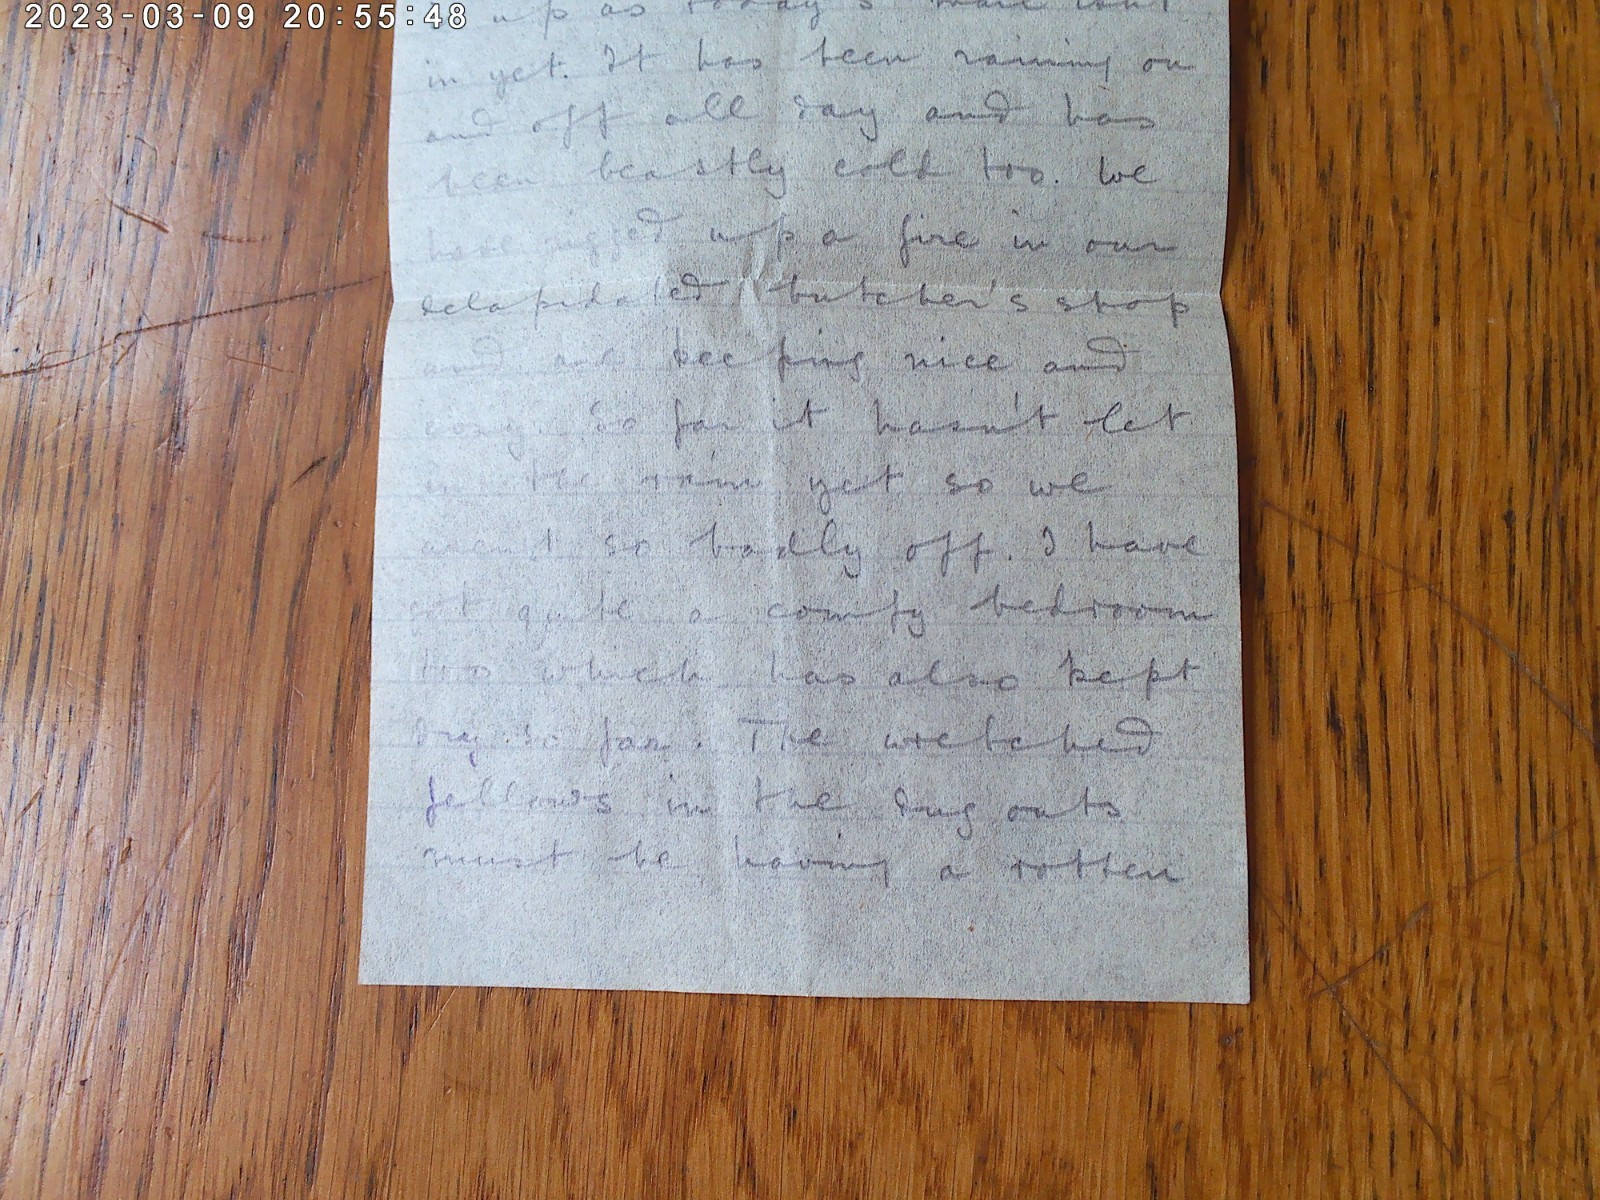 2023-03-09 20:55:48
up as today's mail isn't
in yet. It has been raining on
and off all day and has
been beastly cold too. We
have rigged up a fire in our
delapidated butcher's shop
and are keeping nice and
cosy. So far it hasn't let
in the rain yet so we
aren't so badly off. I have
got quite a comfy bedroom
too which has also kept
dry so far. The wretched
fellows in the dug outs
must be having a rotten